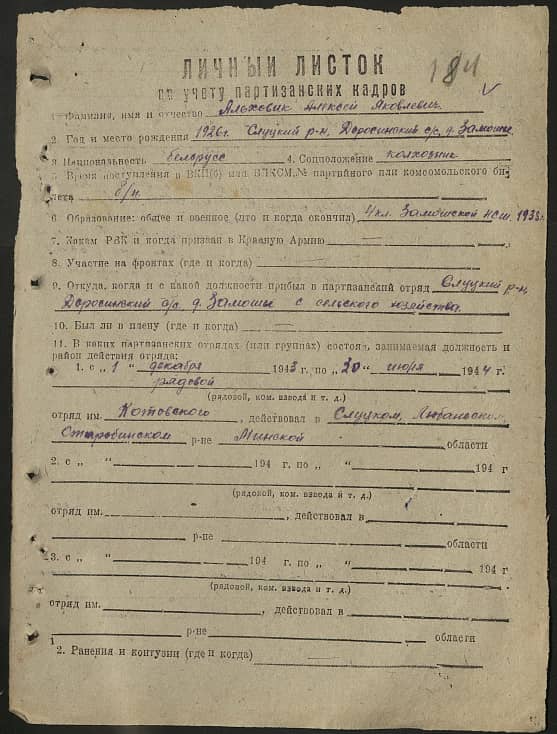 184
ЛИЧНЫЙ ЛИСТОК
по учету партизанских кадров
1. Фамилия, имя и отчество Альховик Алексей Яковлевич
2. Год и место рождения 1926г. Слуцкий р-н, Доросинский с/с, д. Замошье
3 Национальность белорусс 4. Соцположение колхозник
5. Время поступления в ВКП(б) или ВЛКСМ, № партийного или комсомольского би-
лета б/п
6. Образование: общее и военное (что и когда окончил) 4 кл. Замошской нсш. 1938г.
7. Каким РВК и когда призван в Красную Армию
8. Участие на фронтах (где и когда)
9. Откуда, когда и с какой должности прибыл в партизанский отряд Слуцкий р-н,
Доросинский с/с, д. Замошье с сельского хозяйства.
10. Был ли в плену (где и когда)
11. В каких партизанских отрядах (или группах) состоял, занимаемая должность и
район действия отряда:
1. с „ 1 " декабря 1943 г. по „ 30 " июня 1944 г.
рядовой
(рядовой, ком. взвода и т. д.)
отряд им. Котовского, действовал в Слуцком, Любаньском,
Старобинском р-не Минской области
2. с „ " 194 г. по „ " 194 г
(рядовой, ком. взвода и т. д.)
отряд им. , действовал в
р-не области
3. с „ " 194 г. по „ " 194 г
(рядовой, ком. взвода и т. д.)
отряд им. , действовал в
р-не области
2. Ранения и контузии (где и когда)